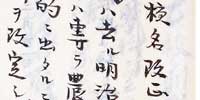 校名改正
ハ去ル明治
ハ専ラ農
的ニ出タルモ
ヲ改定シ